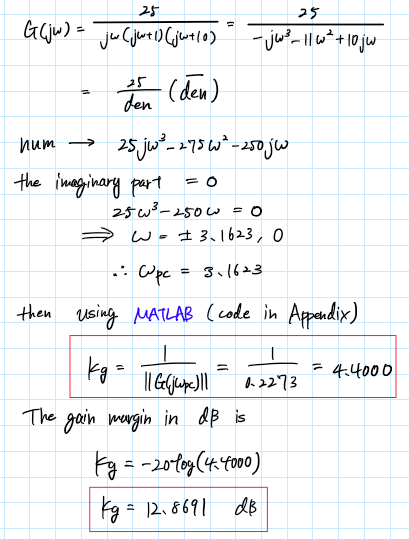 G(jω) = 25 / jω(jω+1)(jω+10) = 25 / -jω³-11ω²+10jω
= 25 / den (d̅e̅n̅)
num → 25jω³-275ω²-250jω
the imaginary part = 0
25ω³-250ω = 0
⇒ ω = ± 3.1623, 0
∴ ωpc = 3.1623
then using MATLAB (code in Appendix)
Kg = 1 / ||G(jωpc)|| = 1 / 0.2273 = 4.4000
The gain margin in dB is
Kg = -20log(4.4000)
Kg = 12.8691 dB